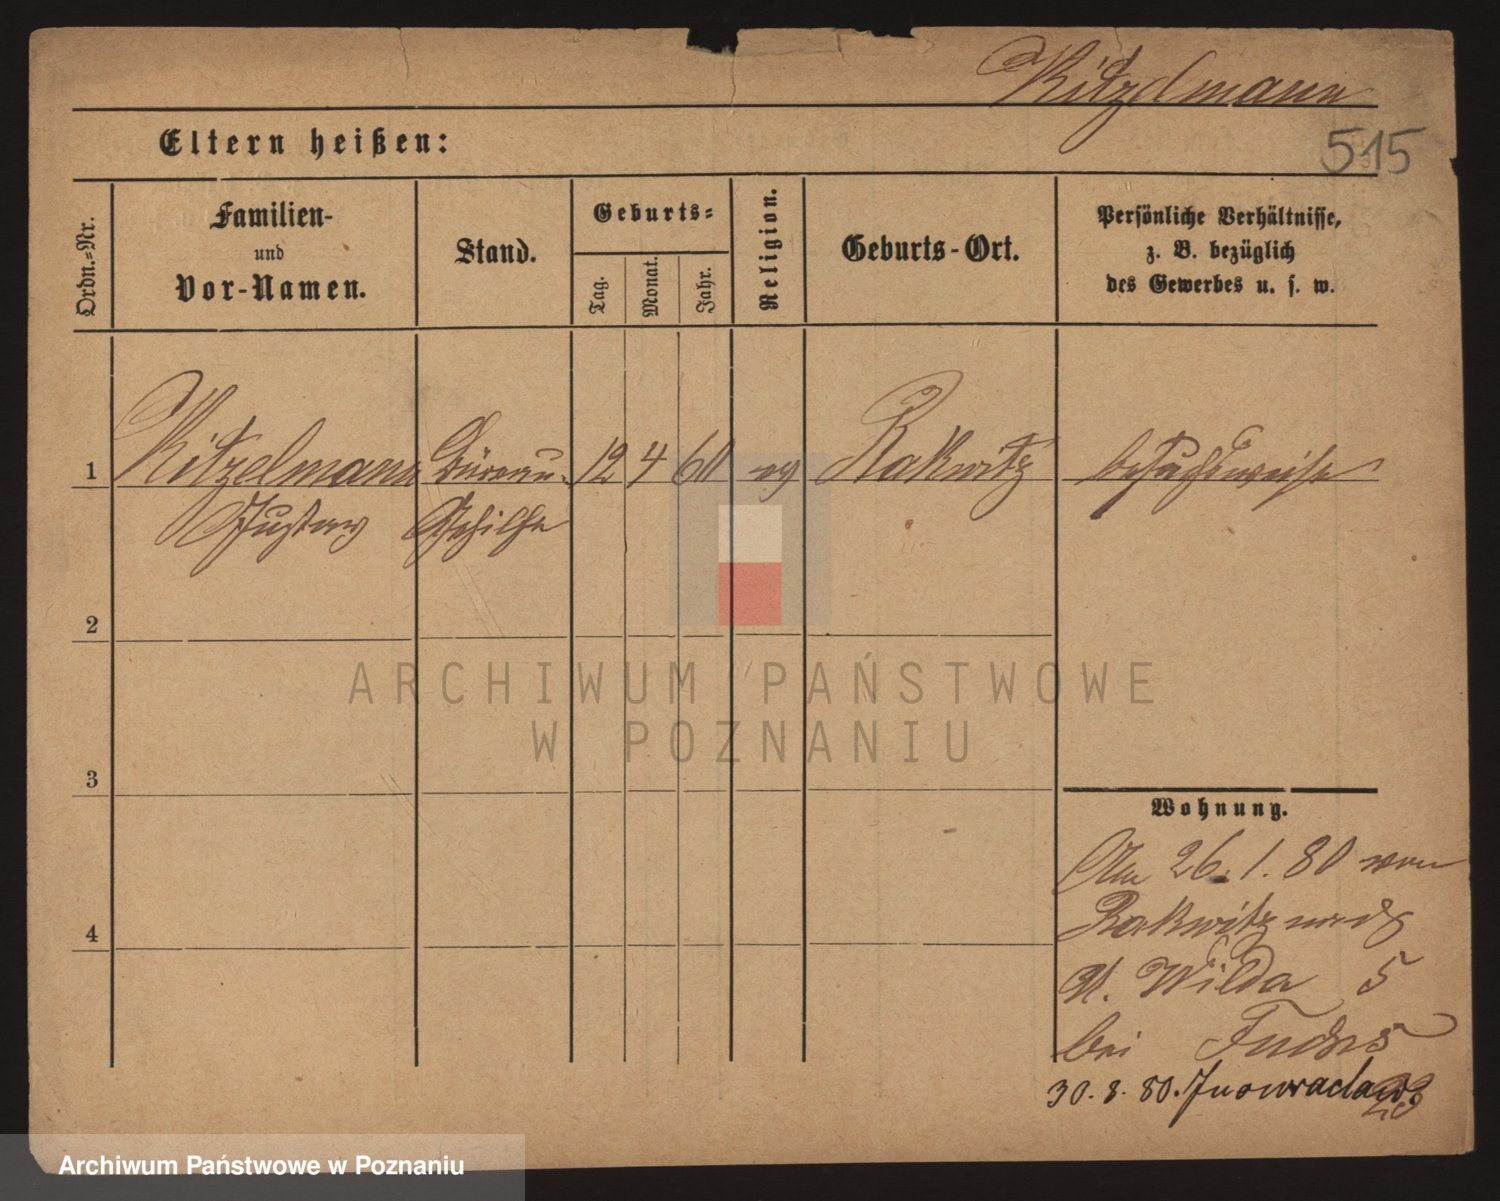 Kitzelmann
Eltern heißen:
515
Ordn.-Nr.
Familien-
und
Vor-Namen.
Stand.
Geburts-
Tag.
Monat.
Jahr.
Religion.
Geburts-Ort.
Persönliche Verhältnisse,
z. B. bezüglich
des Gewerbes u. s. w.
1 Kitzelmann Büreau- 12 4 60 ev Rakwitz besuchsweise
Gustav Gehilfe
2
3
4
ARCHIWUM PAŃSTWOWE
W POZNANIU
Wohnung.
Am 26.1.80 von
Rakwitz nach
U. Wilda 5
bei Fuchs
30.8.80. Inowraclaw.
Archiwum Państwowe w Poznaniu